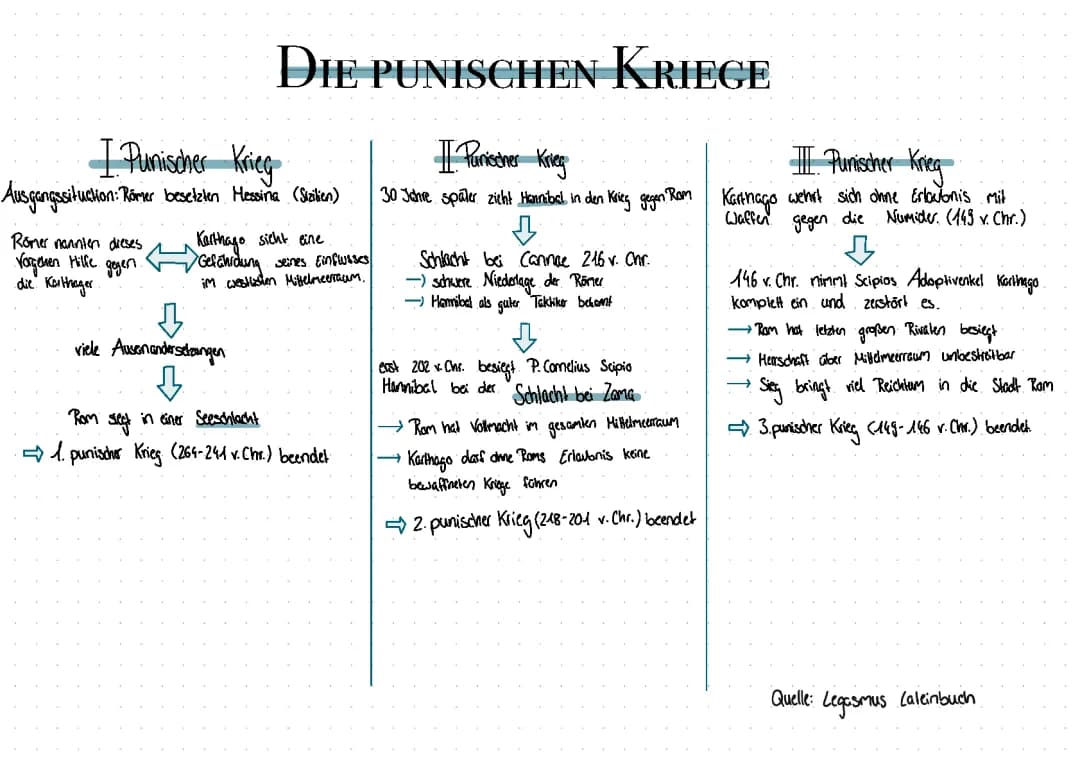 DIE PUNISCHEN KRIEGE
I. Punischer Krieg
Ausgangssituation: Römer besetzten Messina (Sizilien)
Römer nannten dieses
Vorgehen Hilfe gegen
die Karthager
Karthago sieht eine
Gefährdung seines Einflusses
im westlichen Mittelmeerraum.
viele Auseinandersetzungen
Rom siegt in einer Seeschlacht
⇒ 1. punischer Krieg (264-241 v. Chr.) beendet
II. Punischer Krieg
30 Jahre später zieht Hannibal in den Krieg gegen Rom
Schlacht bei Cannae 216 v. Chr.
→ schwere Niederlage der Römer
→ Hannibal als guter Taktiker bekannt
erst 202 v. Chr. besiegt P. Cornelius Scipio
Hannibal bei der Schlacht bei Zama
→ Rom hat Vollmacht im gesamten Mittelmeerraum
→ Karthago darf ohne Roms Erlaubnis keine
bewaffneten Kriege führen
⇒ 2. punischer Krieg (218-201 v. Chr.) beendet
III. Punischer Krieg
Karthago wehrt sich ohne Erlaubnis mit
Waffen gegen die Numider. (149 v. Chr.)
146 v. Chr. nimmt Scipios Adoptivenkel Karthago
komplett ein und zerstört es.
→ Rom hat letzten großen Rivalen besiegt
→ Herrschaft über Mittelmeerraum unbestreitbar
→ Sieg bringt viel Reichtum in die Stadt Rom
⇒ 3. punischer Krieg (149-146 v. Chr.) beendet.
Quelle: Legasmus Lateinbuch